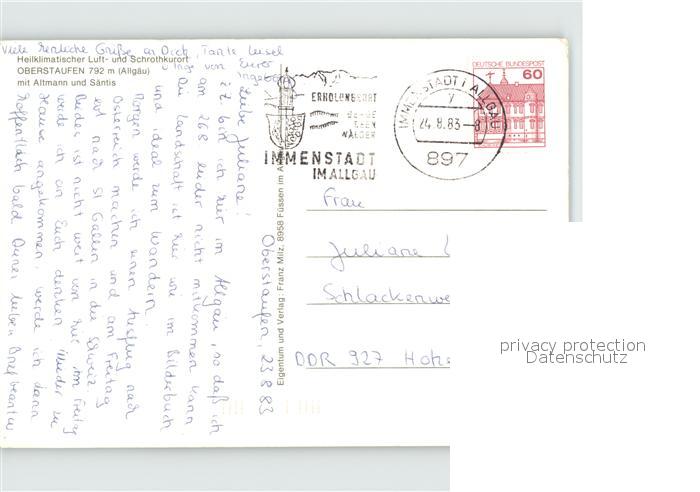 Viele herzliche Grüße an Dich, Tante Liesel
u. Inge von Eurer
Ingeborg
Heilklimatischer Luft- und Schrothkurort
OBERSTAUFEN 792 m (Allgäu)
mit Altmann und Säntis
Oberstaufen, 23.8.83
Liebe Juliane!
Z.Z. bin ich hier im Allgäu, so daß ich
am 26.8. leider nicht mitkommen kann.
Die Landschaft ist hier wie im Bilderbuch
und ideal zum Wandern.
Morgen werde ich einen Ausflug nach
Österreich machen und am Freitag
erst nach St Gallen in die Schweiz.
Beides ist nicht weit von hier. Am Freitag
werde ich an Euch denken. Wieder zu
Hause angekommen, werde ich dann
hoffentlich bald Deinen lieben Brief beantw
Eigentum und Verlag: Franz Milz, 8958 Füssen im A
ERHOLUNGSORT
BERGE
SEEN
WÄLDER
IMMENSTADT
IM ALLGÄU
IMMENSTADT i ALLGÄU
24.8.83-8
897
DEUTSCHE BUNDESPOST
60
Frau
Juliane
Schlackenwe
DDR 927 Hohe
privacy protection
Datenschutz